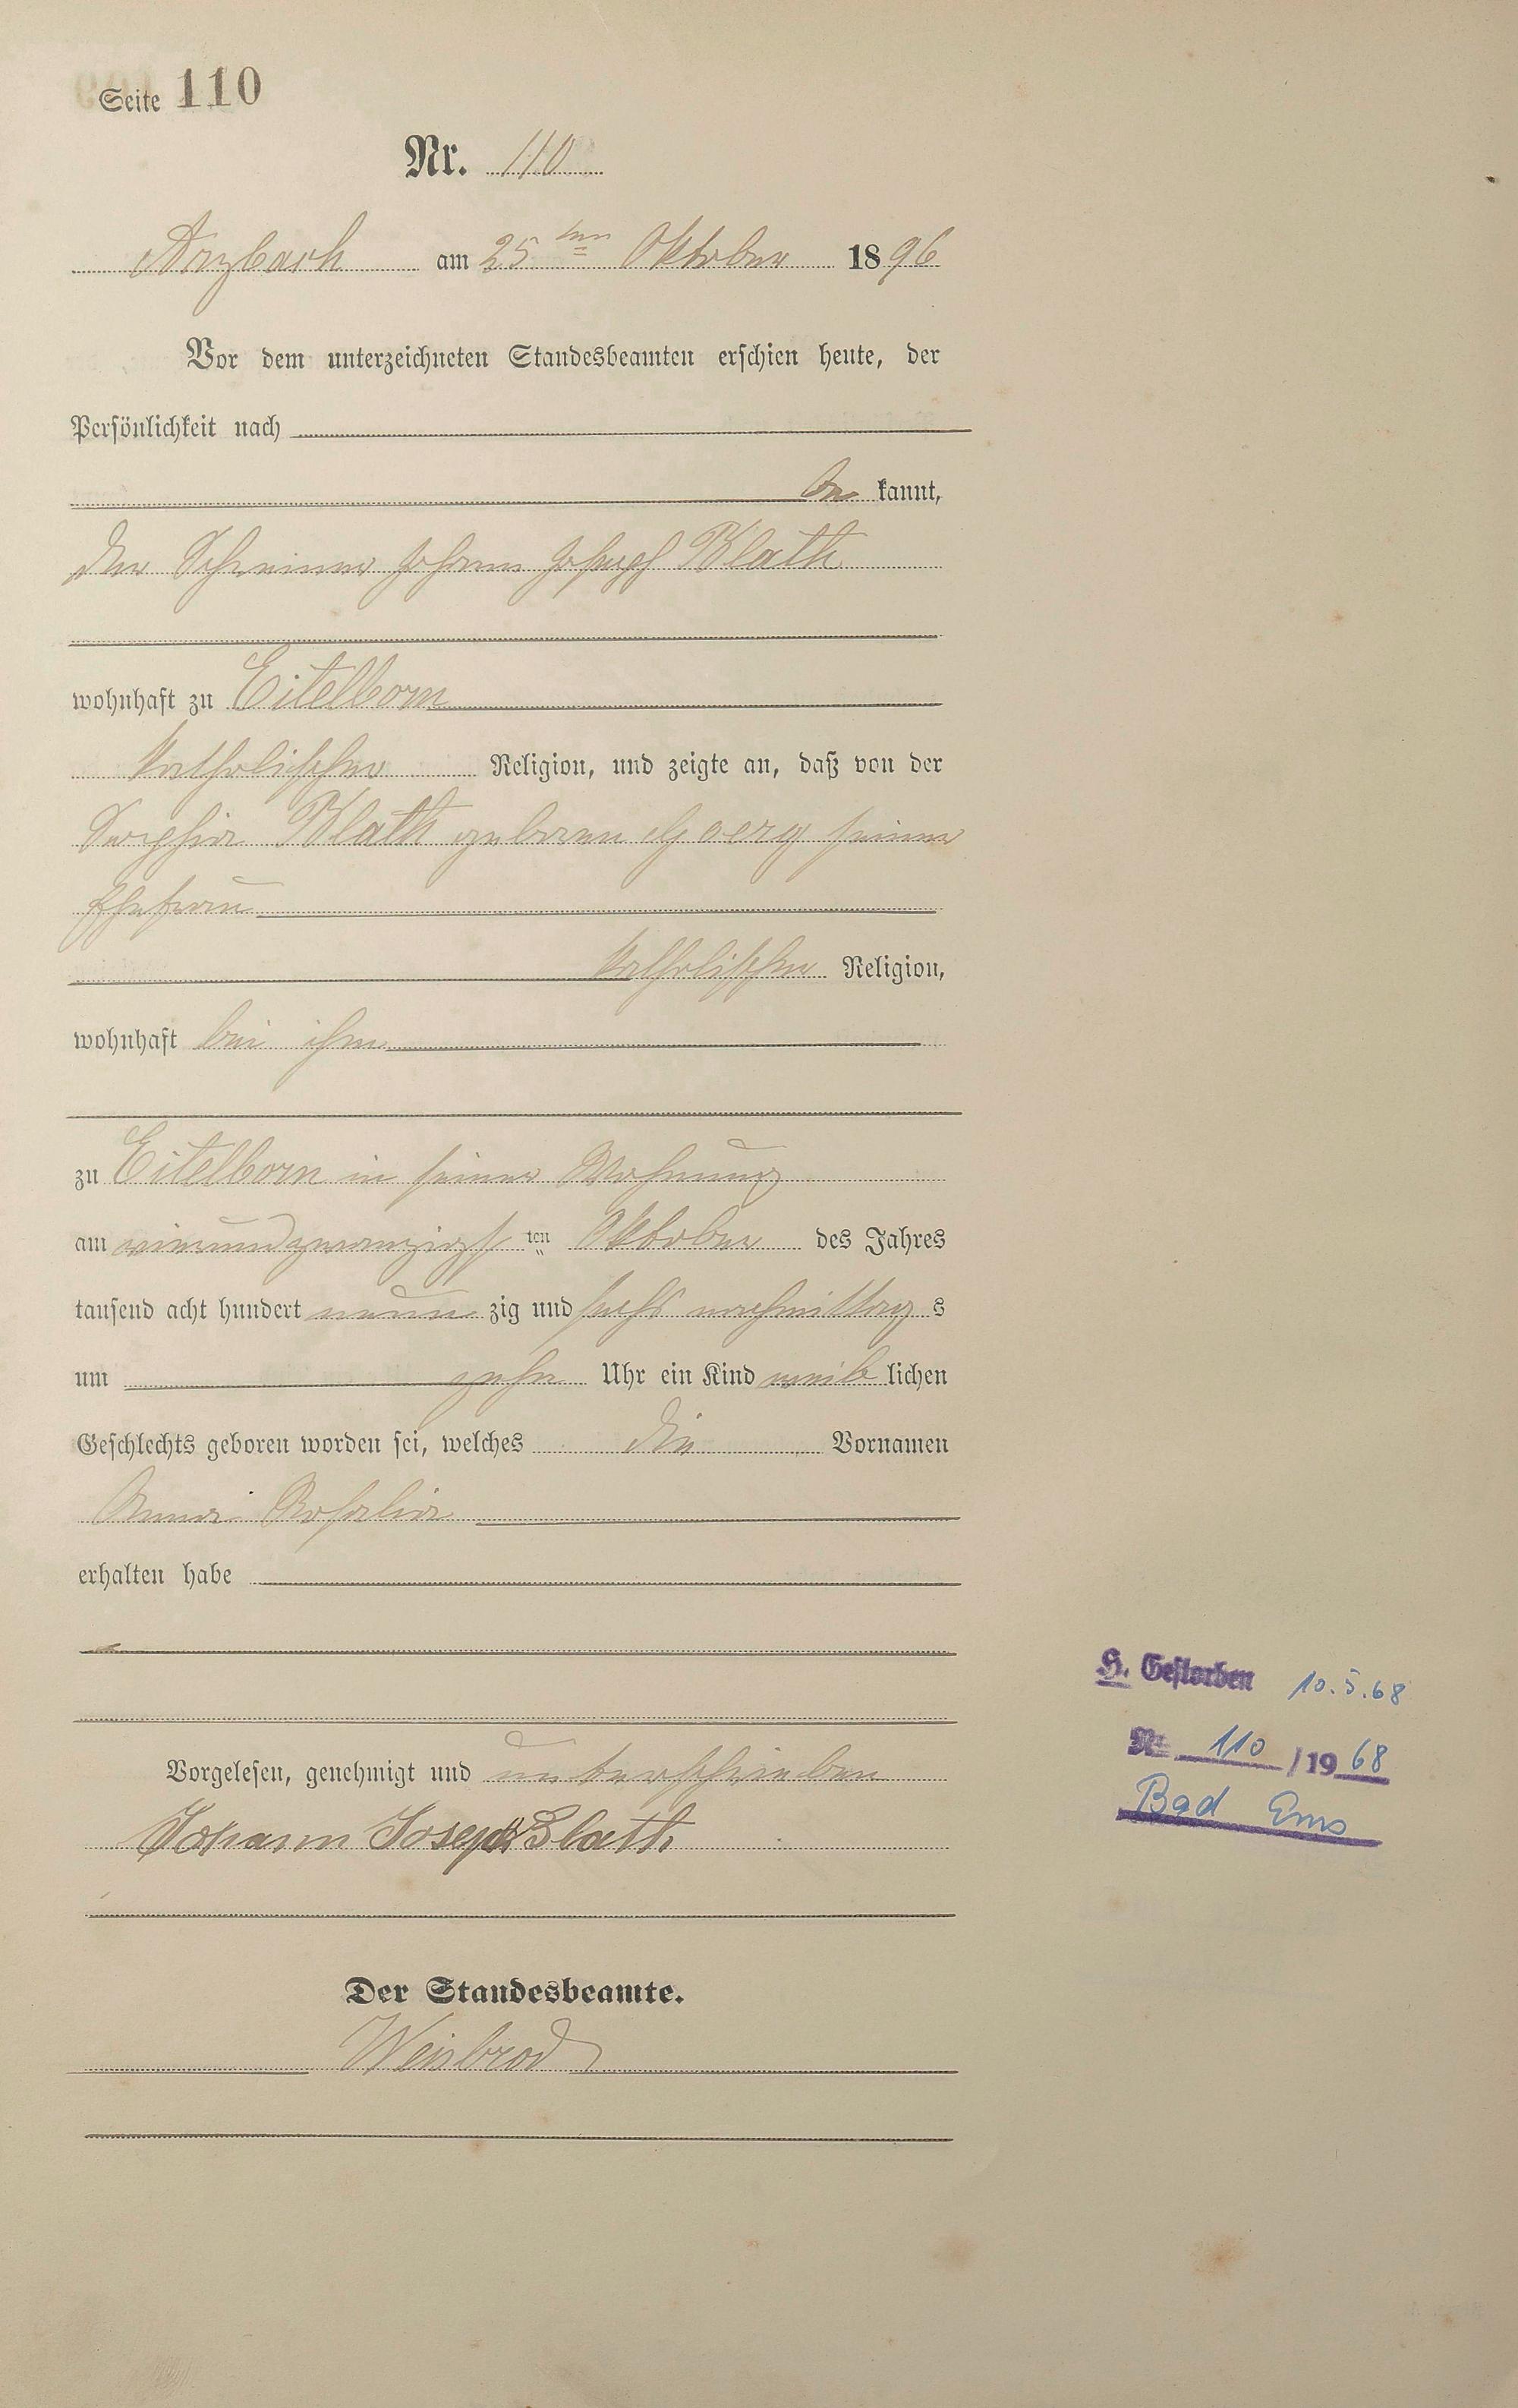 Seite 110
Nr. 110
Arzbach am 25ten Oktober 1896
Vor dem unterzeichneten Standesbeamten erschien heute, der
Persönlichkeit nach
be kannt,
der Schreiner Johann Joseph Blath
wohnhaft zu Eitelborn
katholischer Religion, und zeigte an, daß von der
Sophia Blath geboren Goerg seiner
Ehefrau
katholischer Religion,
wohnhaft bei ihm
zu Eitelborn in seiner Wohnung
am einundzwanzigsten Oktober des Jahres
tausend acht hundert neun zig und sechs nachmittag s
um zehn Uhr ein Kind weib lichen
Geschlechts geboren worden sei, welches die Vornamen
Anna Rosalia
erhalten habe
Vorgelesen, genehmigt und unterschrieben
Johann Joseph Blath
Der Standesbeamte.
Weisbrod
H. Gestorben 10.5.68
Nr. 110 / 19 68
Bad Ems